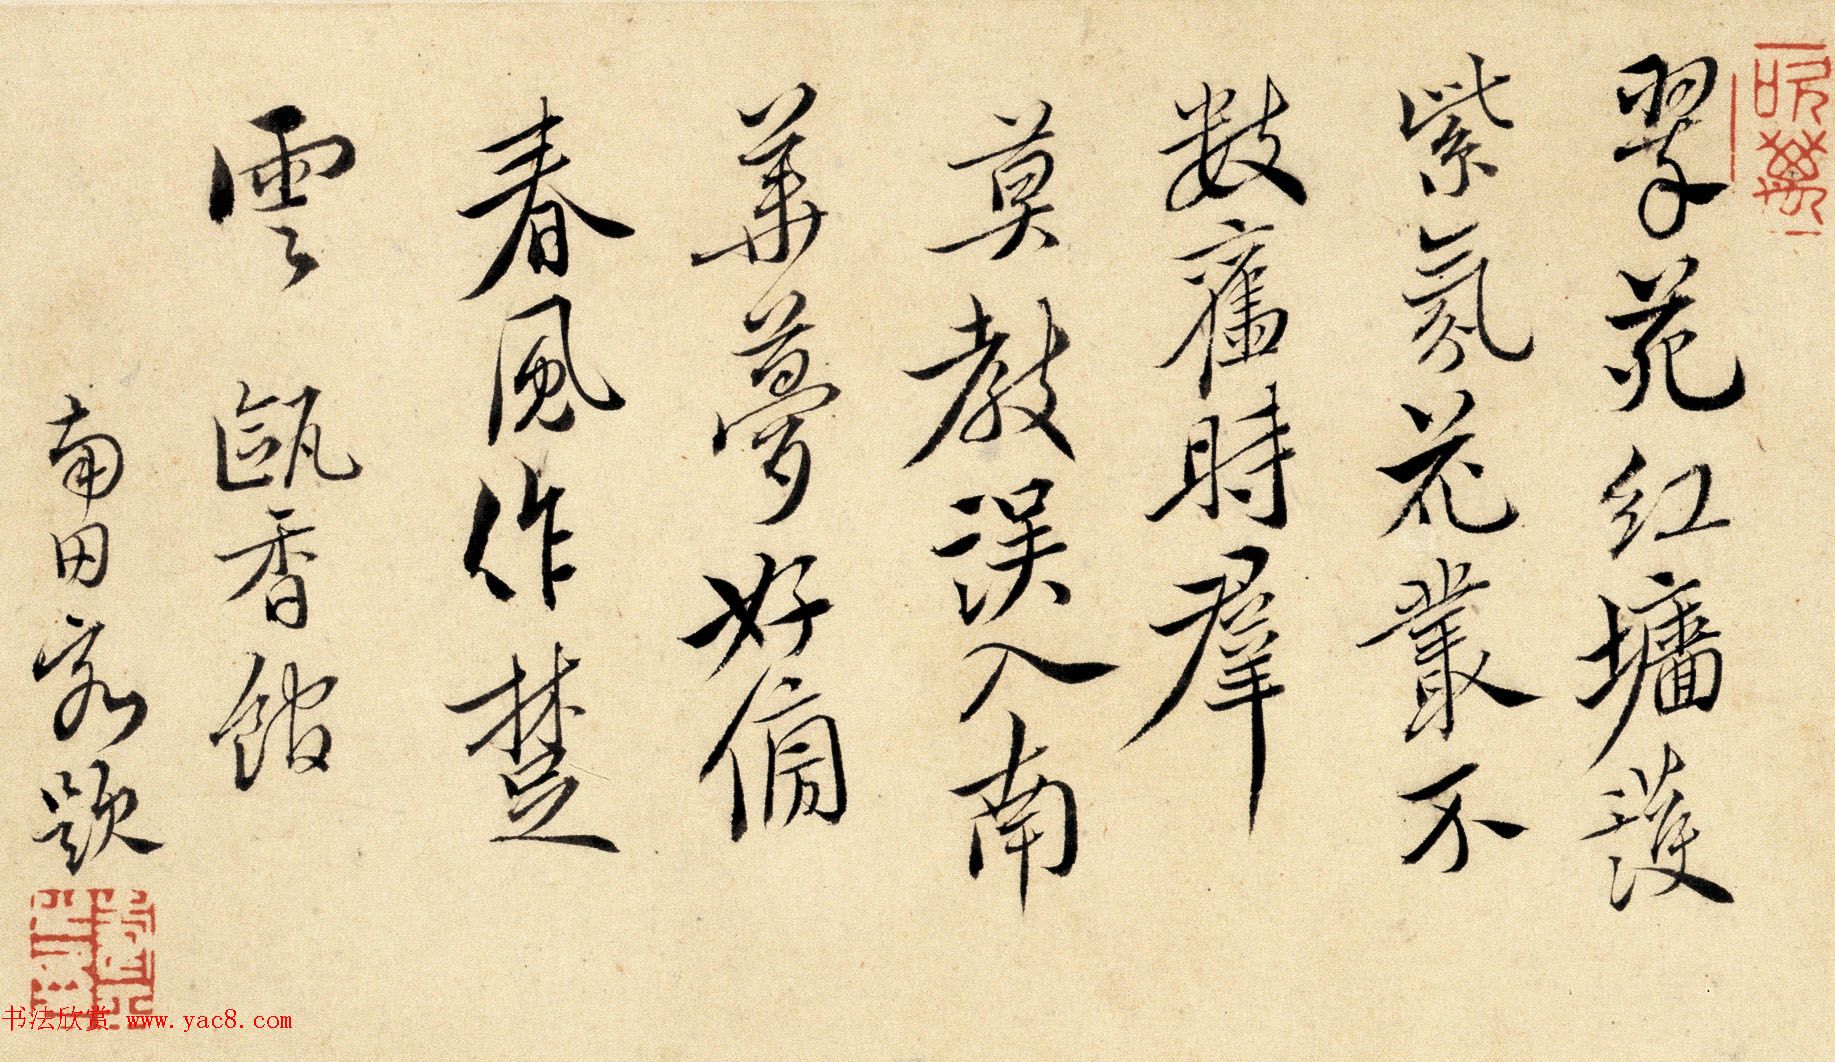 翠苑红墻護
紫氛花叢不
數舊時羣
莫教误入南
華夢好倩
春風作楚
雲 甌香館
南田客題
书法欣赏 www.yac8.com